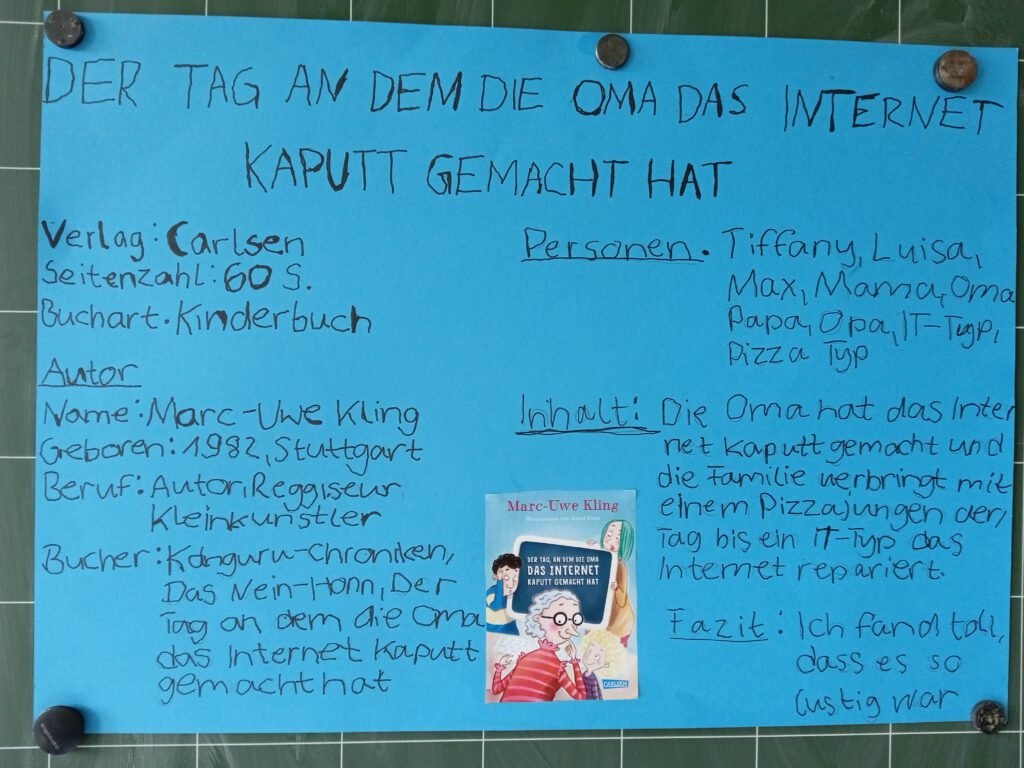 DER TAG AN DEM DIE OMA DAS INTERNET
KAPUTT GEMACHT HAT
Verlag: Carlsen
Seitenzahl: 60 S.
Buchart. Kinderbuch
Autor
Name: Marc-Uwe Kling
Geboren: 1982, Stuttgart
Beruf: Autor, Reggiseur
Kleinkunstler
Bucher: Känguru-Chroniken,
Das Nein-Horn, Der
Tag an dem die Oma
das Internet Kaputt
gemacht hat
Personen. Tiffany, Luisa,
Max, Mama, Oma
Papa, Opa, IT-Typ,
Pizza Typ
Inhalt: Die Oma hat das Inter
net kaputt gemacht und
die Familie verbringt mit
einem Pizzajungen den
Tag bis ein IT-Typ das
Internet repariert.
Fazit: Ich fand toll,
dass es so
lustig war
Marc-Uwe Kling
DER TAG, AN DEM DIE OMA
DAS INTERNET
KAPUTT GEMACHT HAT
CARLSEN